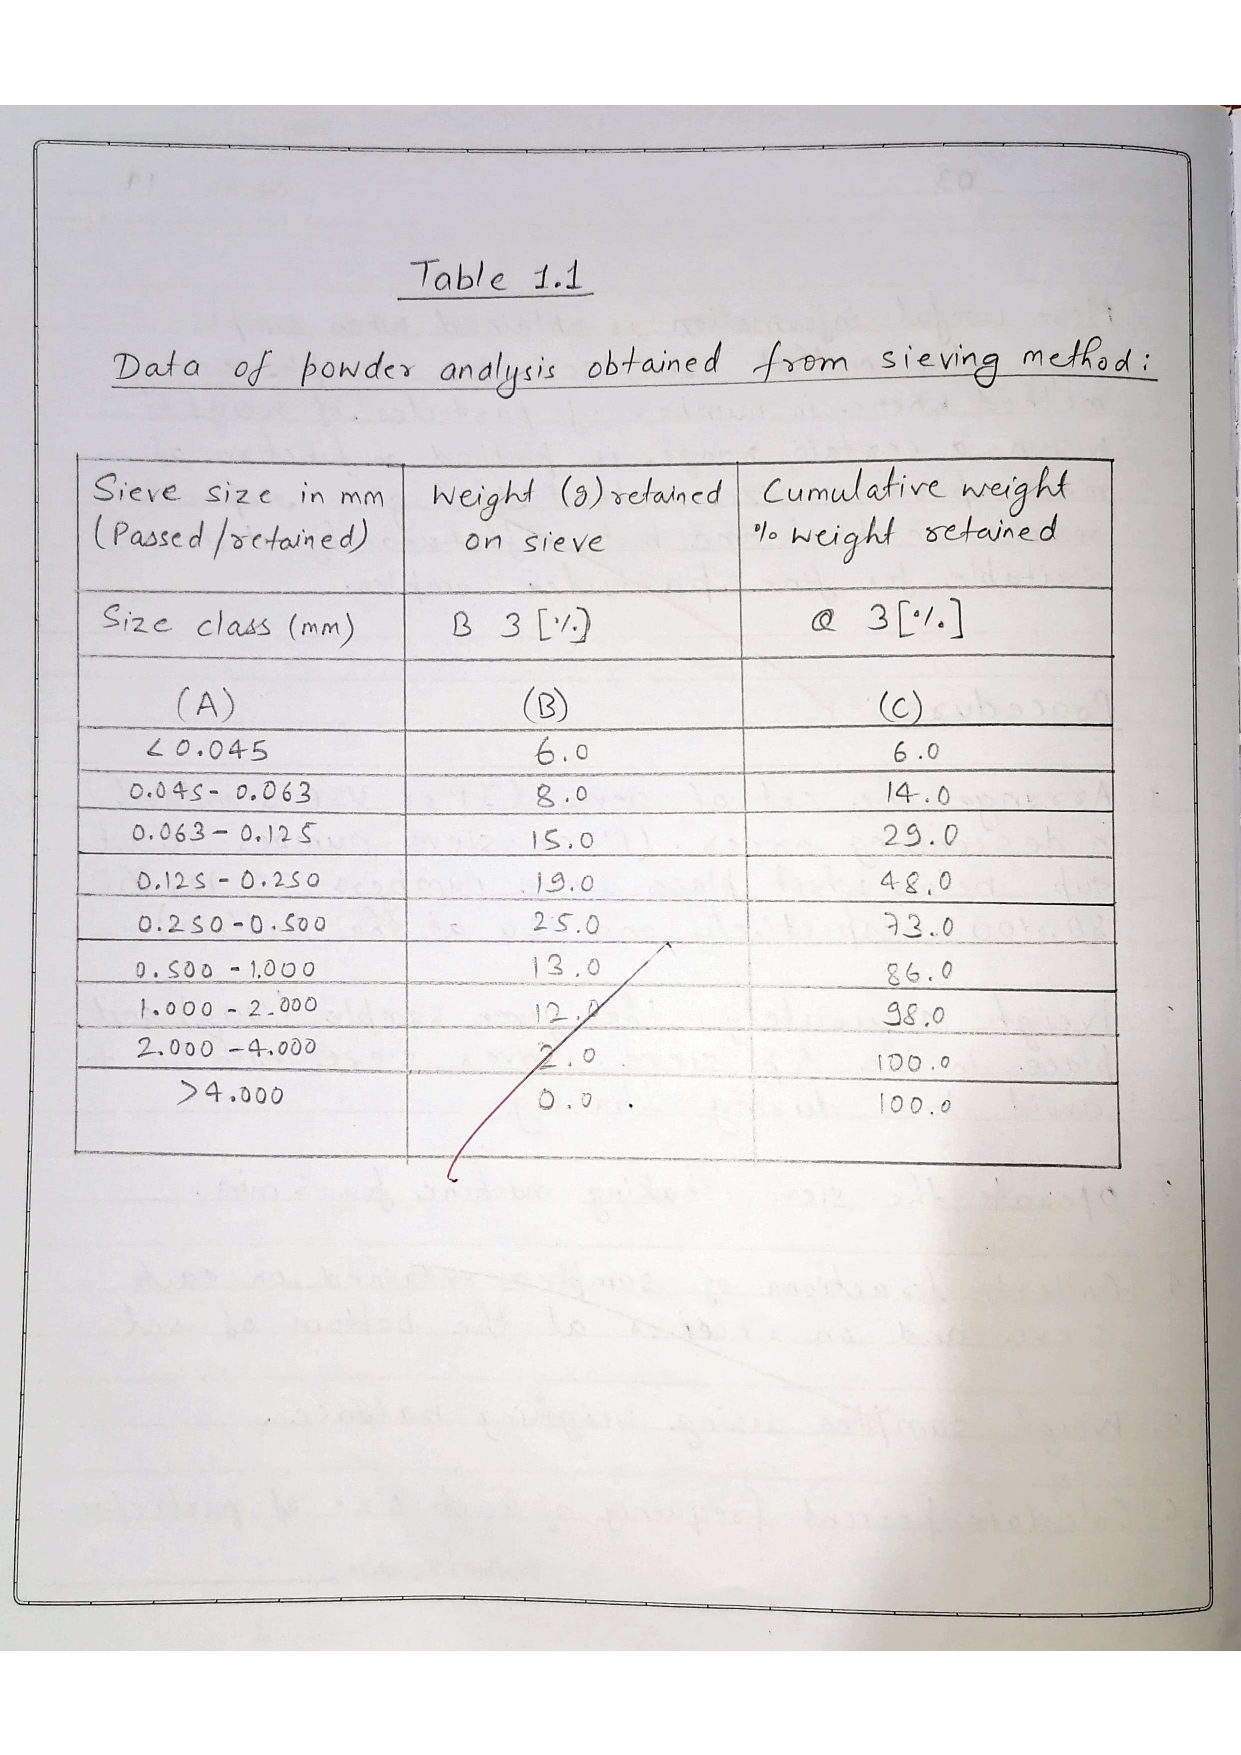 Table 1.1
Data of powder analysis obtained from sieving method:
Sieve size in mm (Passed/retained) | Weight (g) retained on sieve | Cumulative weight % weight retained
Size class (mm) | B 3 [%] | Q 3[%]
(A) | (B) | (C)
<0.045 | 6.0 | 6.0
0.045- 0.063 | 8.0 | 14.0
0.063-0.125 | 15.0 | 29.0
0.125-0.250 | 19.0 | 48.0
0.250-0.500 | 25.0 | 73.0
0.500-1.000 | 13.0 | 86.0
1.000-2.000 | 12.0 | 98.0
2.000-4.000 | 2.0 | 100.0
>4.000 | 0.0 | 100.0